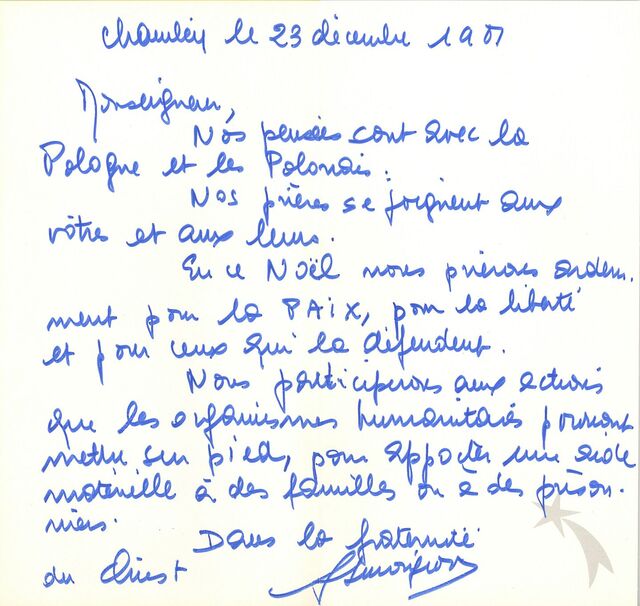 le 23 décembre 1981
Monseigneur,
Nos pensées sont avec la
Pologne et les Polonais.
Nos prières se joignent aux
vôtres et aux leurs.
En ce Noël nous prierons ardem-
ment pour la PAIX, pour la liberté
et pour ceux qui la défendent.
Nous participerons aux actions
que les organismes humanitaires pourront
mettre sur pied, pour apporter une aide
matérielle à des familles ou à des prison-
niers.
Dans la fraternité
du Christ